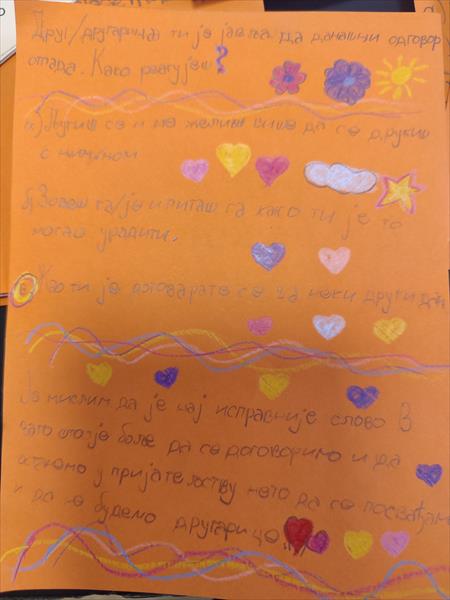 Друг/другарица ти је јавља да данашни одговор
отпада. Како реагујеш?
а) Љутиш се и не желиш више да се дружиш
с њим/њом
б) Зовеш га/је и питаш га како ти је то
могао урадити.
в) Жао ти је договарате се за неки други дан
Ја мислим да је нај исправније слово В
зато што је боље да се договоримо и да
останемо у пријатељству него да се посвађамо
и да не будемо другарице...